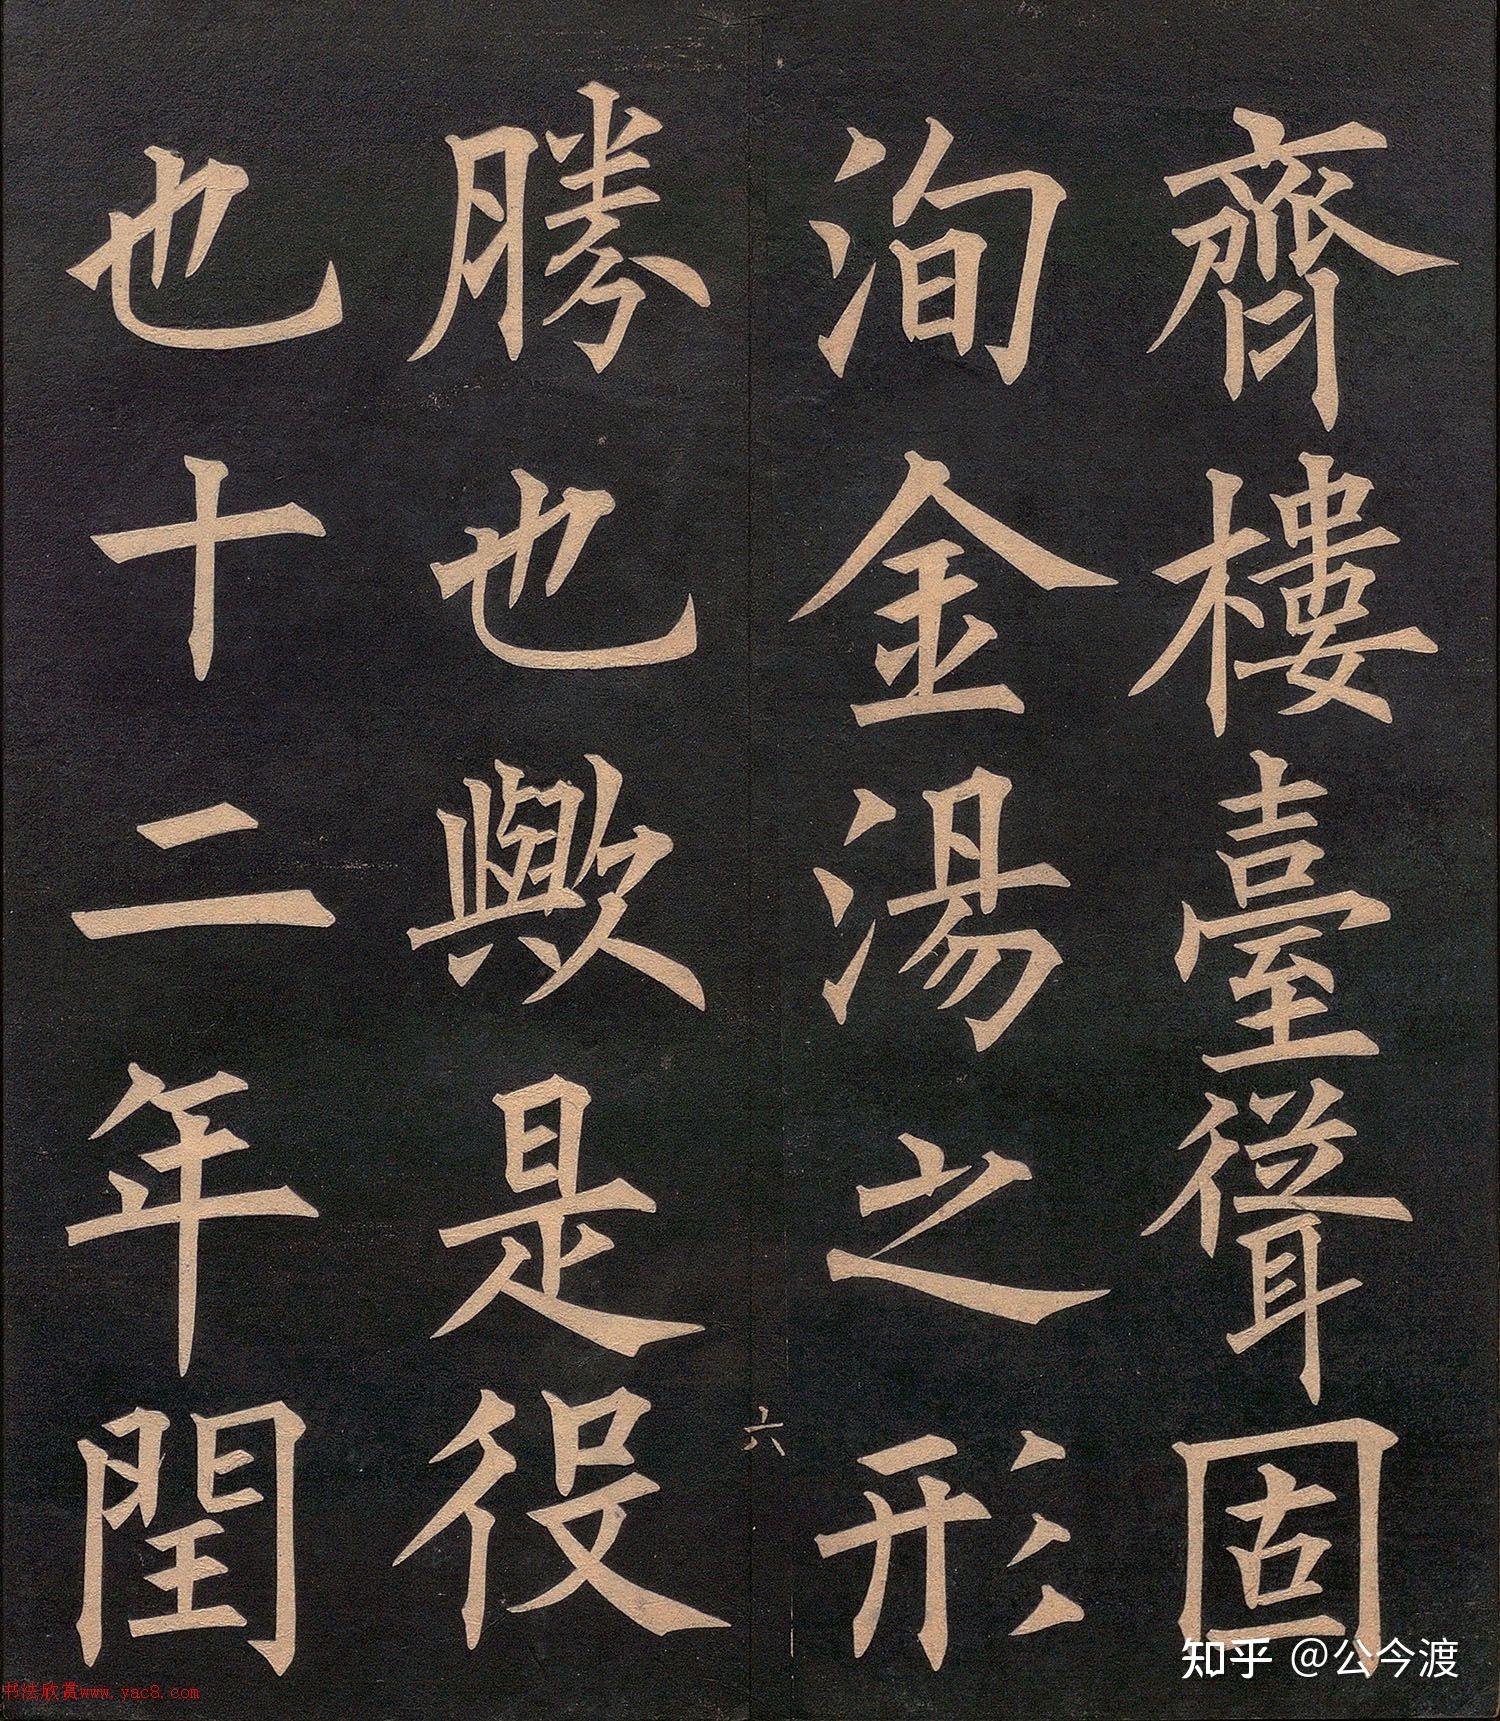 齊樓臺聳固
洵金湯之形
勝也歟是役
也十二年閏
六
知乎 @公今渡
书法欣赏www.yac8.com